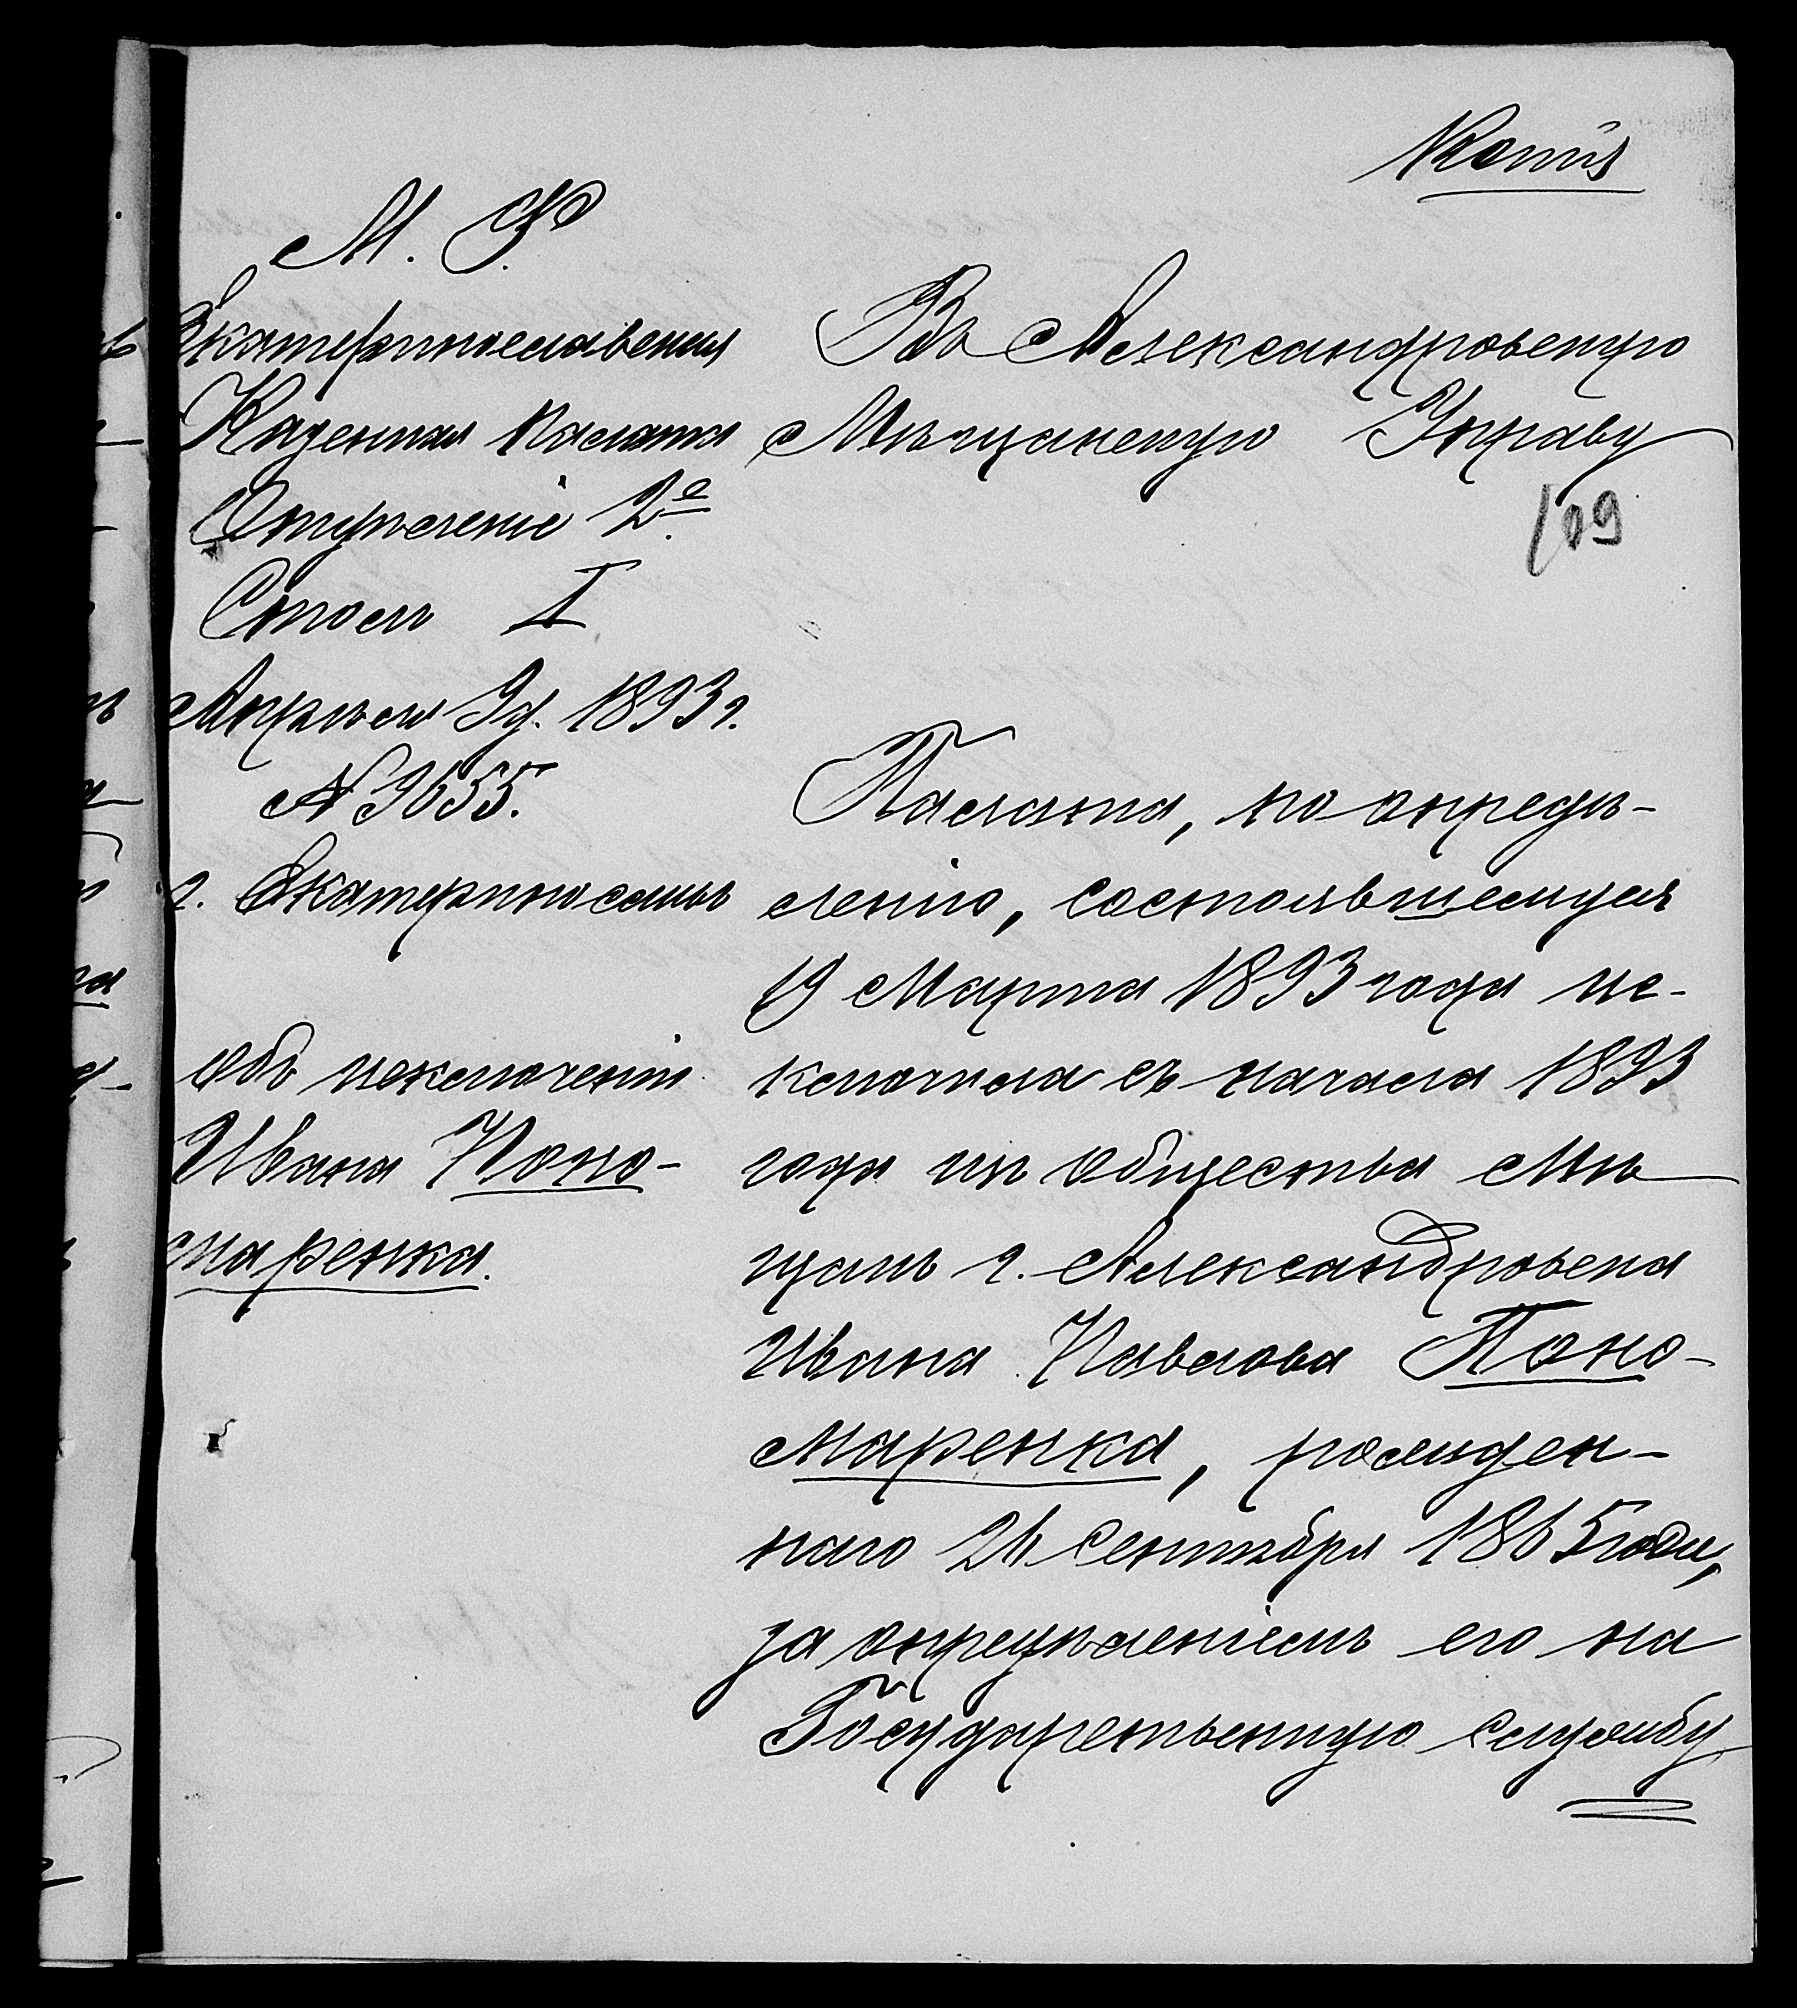 Копія
М. Ф.
Екатеринославская
Казенная Палата
Отдѣленіе 2е
Столъ I
Апрѣля 9 д. 1893 г.
№ 3655.
г. Екатеринославъ
Объ исключеніи
Ивана Поно-
маренка.
Въ Александровскую
Мѣщанскую Управу
109
Палата, по опредѣ-
ленію, состоявшемуся
19 Марта 1893 года ис-
ключила съ начала 1893
года изъ общества Мѣ
щанъ г. Александровска
Ивана Павлова Поно-
маренка, рожден-
наго 26 Сентября 1865 года,
за опредѣленіемъ его на
Государственную службу